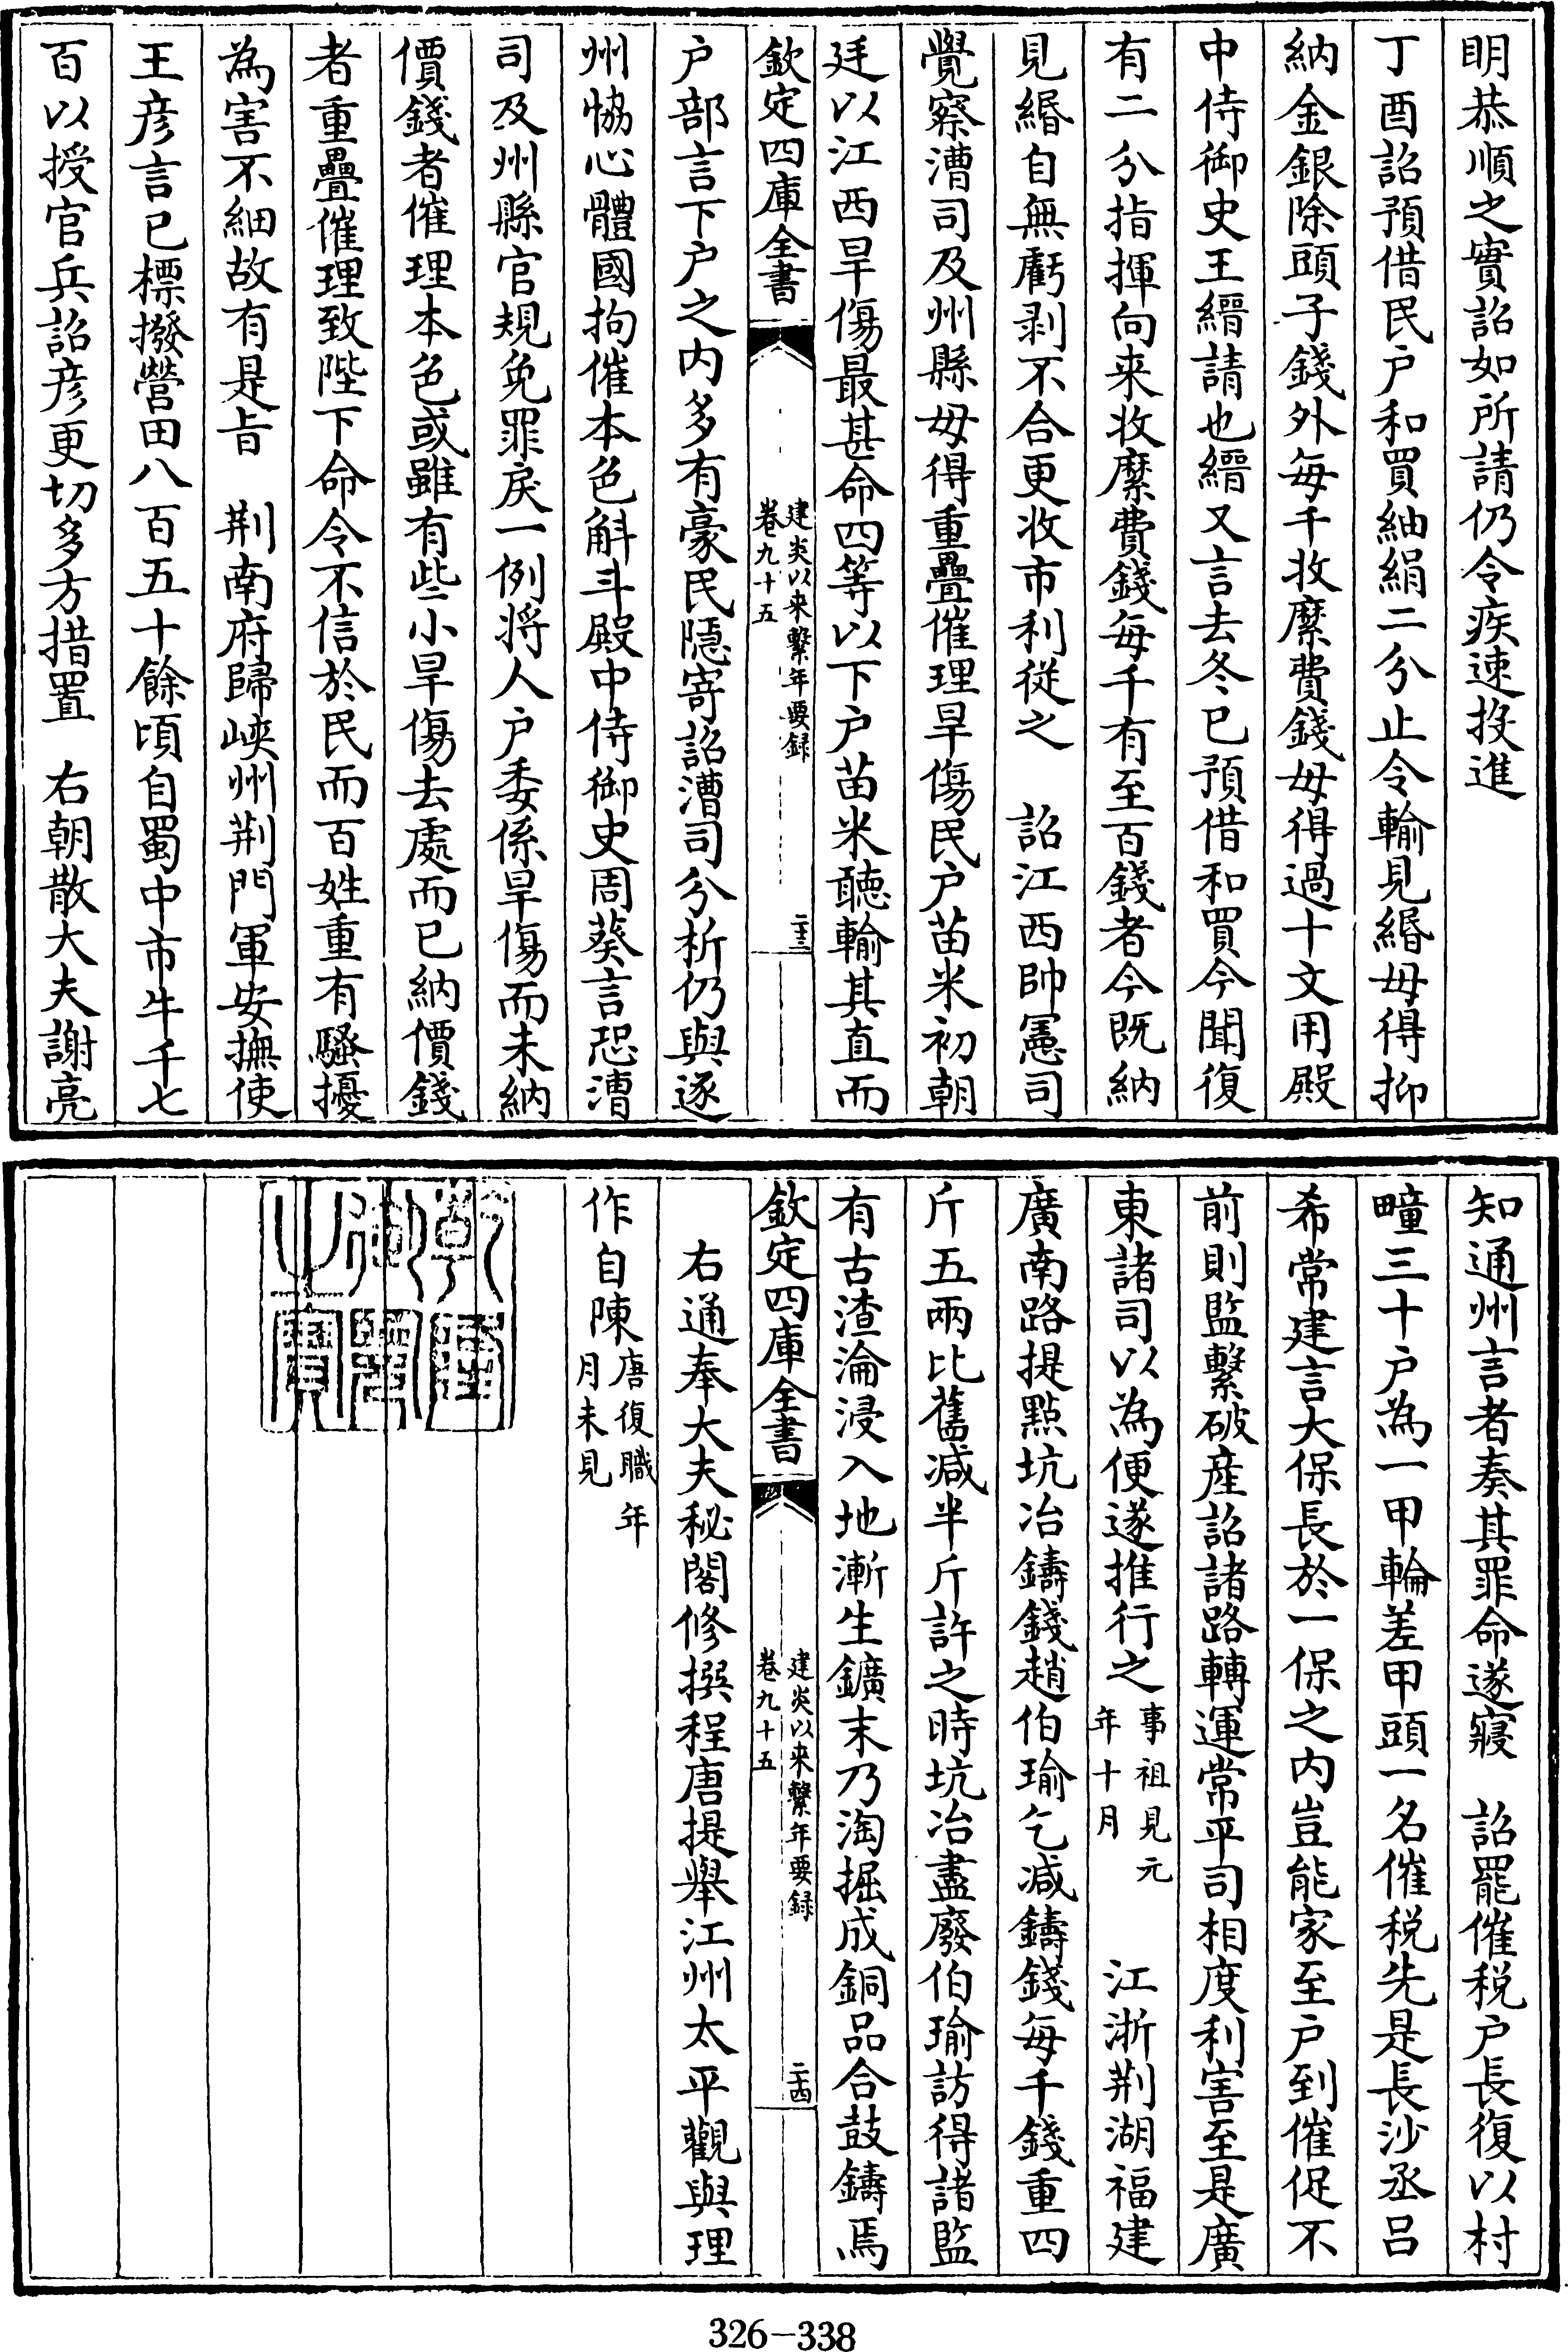 明恭順之實詔如所請仍令疾速投進
丁酉詔預借民户和買紬絹二分止令輸見緡毋得抑
納金銀除頭子錢外每千收縻費錢毋得過十文用殿
中侍御史王縉請也縉又言去冬已預借和買今聞復
有二分指揮向来收縻費錢每千有至百錢者今既納
見緡自無虧剥不合更收市利從之　詔江西帥憲司
覺察漕司及州縣毋得重疊催理旱傷民户苗米初朝
廷以江西旱傷最甚命四等以下户苗米聽輸其直而
欽定四庫全書
建炎以来繫年要録
卷九十五
二十三
户部言下户之内多有豪民隱寄詔漕司分析仍與逐
州恊心體國拘催本色斛斗殿中侍御史周葵言恐漕
司及州縣官規免罪戾一例將人户委係旱傷而未納
價錢者催理本色或雖有些小旱傷去處而已納價錢
者重疊催理致陛下命令不信於民而百姓重有騷擾
為害不細故有是旨　荆南府歸峽州荆門軍安撫使
王彦言已標撥營田八百五十餘頃自蜀中市牛千七
百以授官兵詔彦更切多方措置　右朝散大夫謝亮
知通州言者奏其罪命遂寢　詔罷催税户長復以村
疃三十户為一甲輪差甲頭一名催税先是長沙丞呂
希常建言大保長於一保之内豈能家至户到催促不
前則監繫破産詔諸路轉運常平司相度利害至是廣
東諸司以為便遂推行之事祖見元年十月　江浙荆湖福建
廣南路提點坑冶鑄錢趙伯瑜乞减鑄錢每千錢重四
斤五兩比舊减半斤許之時坑冶盡廢伯瑜訪得諸監
有古渣淪浸入地漸生鑛末乃淘掘成銅品合鼓鑄焉
欽定四庫全書
建炎以来繫年要録
卷九十五
二十四
右通奉大夫秘閣修撰程唐提舉江州太平觀與理
作自陳唐復職年月未見
乾隆御覽之寶
326-338